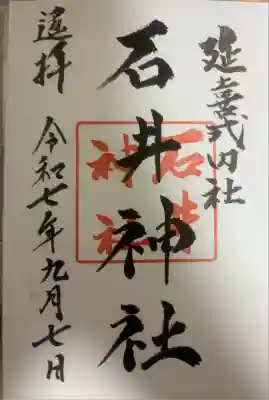 延喜式内社
石井神社
石井
神社
遥拝
令和七年九月七日